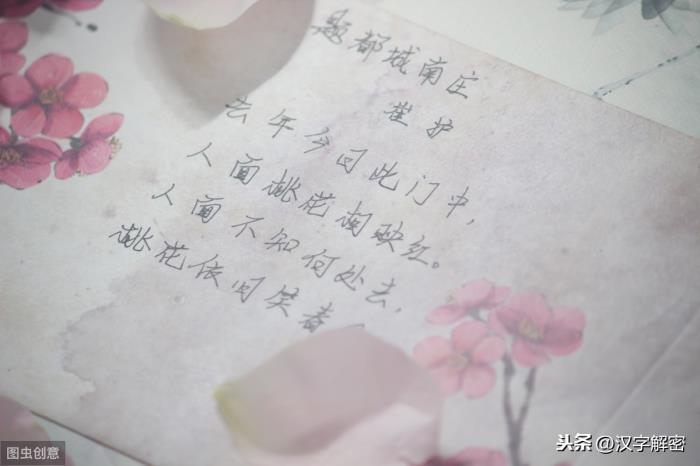 题都城南庄
崔护
去年今日此门中，
人面桃花相映红。
人面不知何处去，
桃花依旧笑春
图虫创意
头条@汉字解密